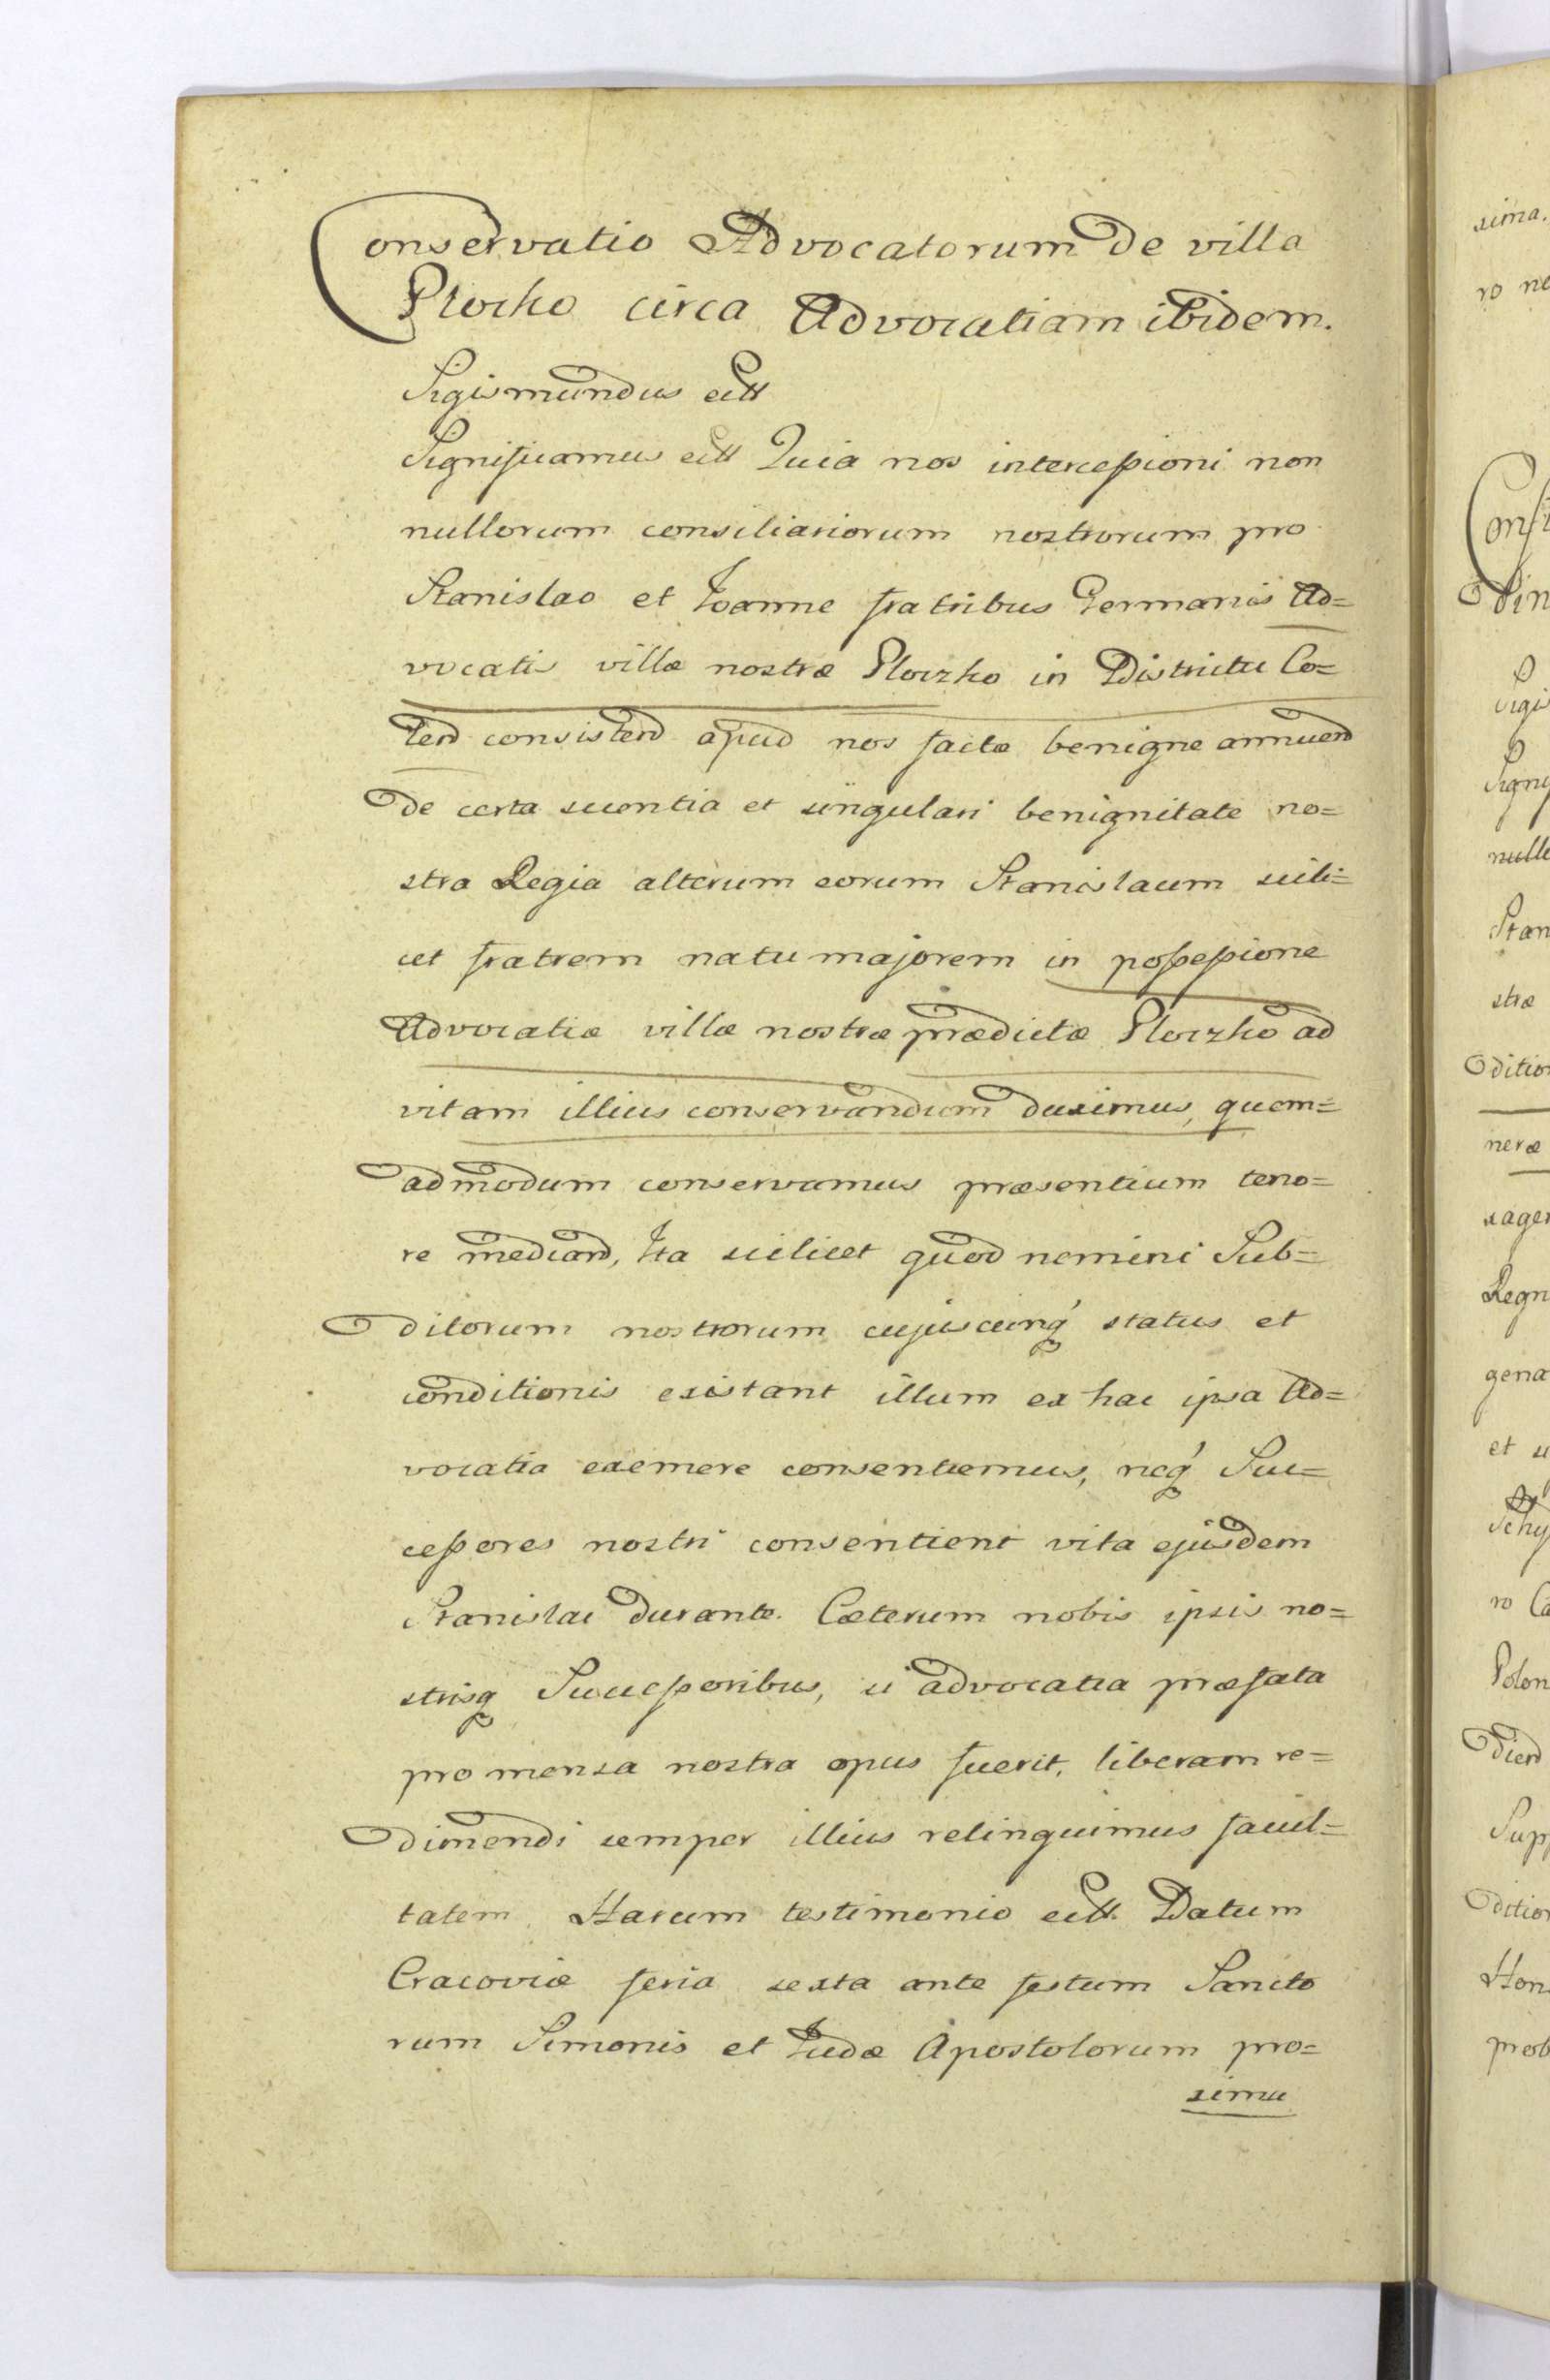 Conservatio Advocatorum de villa
Plocko circa Advocatiam ibidem.
Sigismundus etc
Significamus etc Quia nos intercessioni non
nullorum consiliariorum nostrorum pro
Stanislao et Joanne fratribus Germanis Ad=
vocatis villæ nostræ Ploczko in Districtu Co=
len consisten apud nos factæ benigne annuen
de certa scientia et singulari benignitate no=
stra Regia alterum eorum Stanislaum scili=
cet fratrem natu majorem in possessione
Advocatiæ villæ nostræ prædictæ Ploczko ad
vitam illius conservandum duximus, quem=
admodum conservamus præsentium teno=
re median, Ita scilicet quod nemini Sub=
ditorum nostrorum cujuscunq status et
conditionis existant illum ex hac ipsa Ad=
vocatia eximere consentiemus, neq Suc=
cessores nostri consentient vita ejusdem
Stanislai durante. Cæterum nobis ipsis no=
strisq Successoribus, si advocatia præfata
pro mensa nostra opus fuerit, liberam re=
dimendi semper illius relinquimus facul=
tatem. Harum testimonio etc. Datum
Cracoviæ feria sexta ante festum Sancto
rum Simonis et Judæ Apostolorum pro=
xima
sima.
ro
nulle
stræ
neræ
gena
et
ro